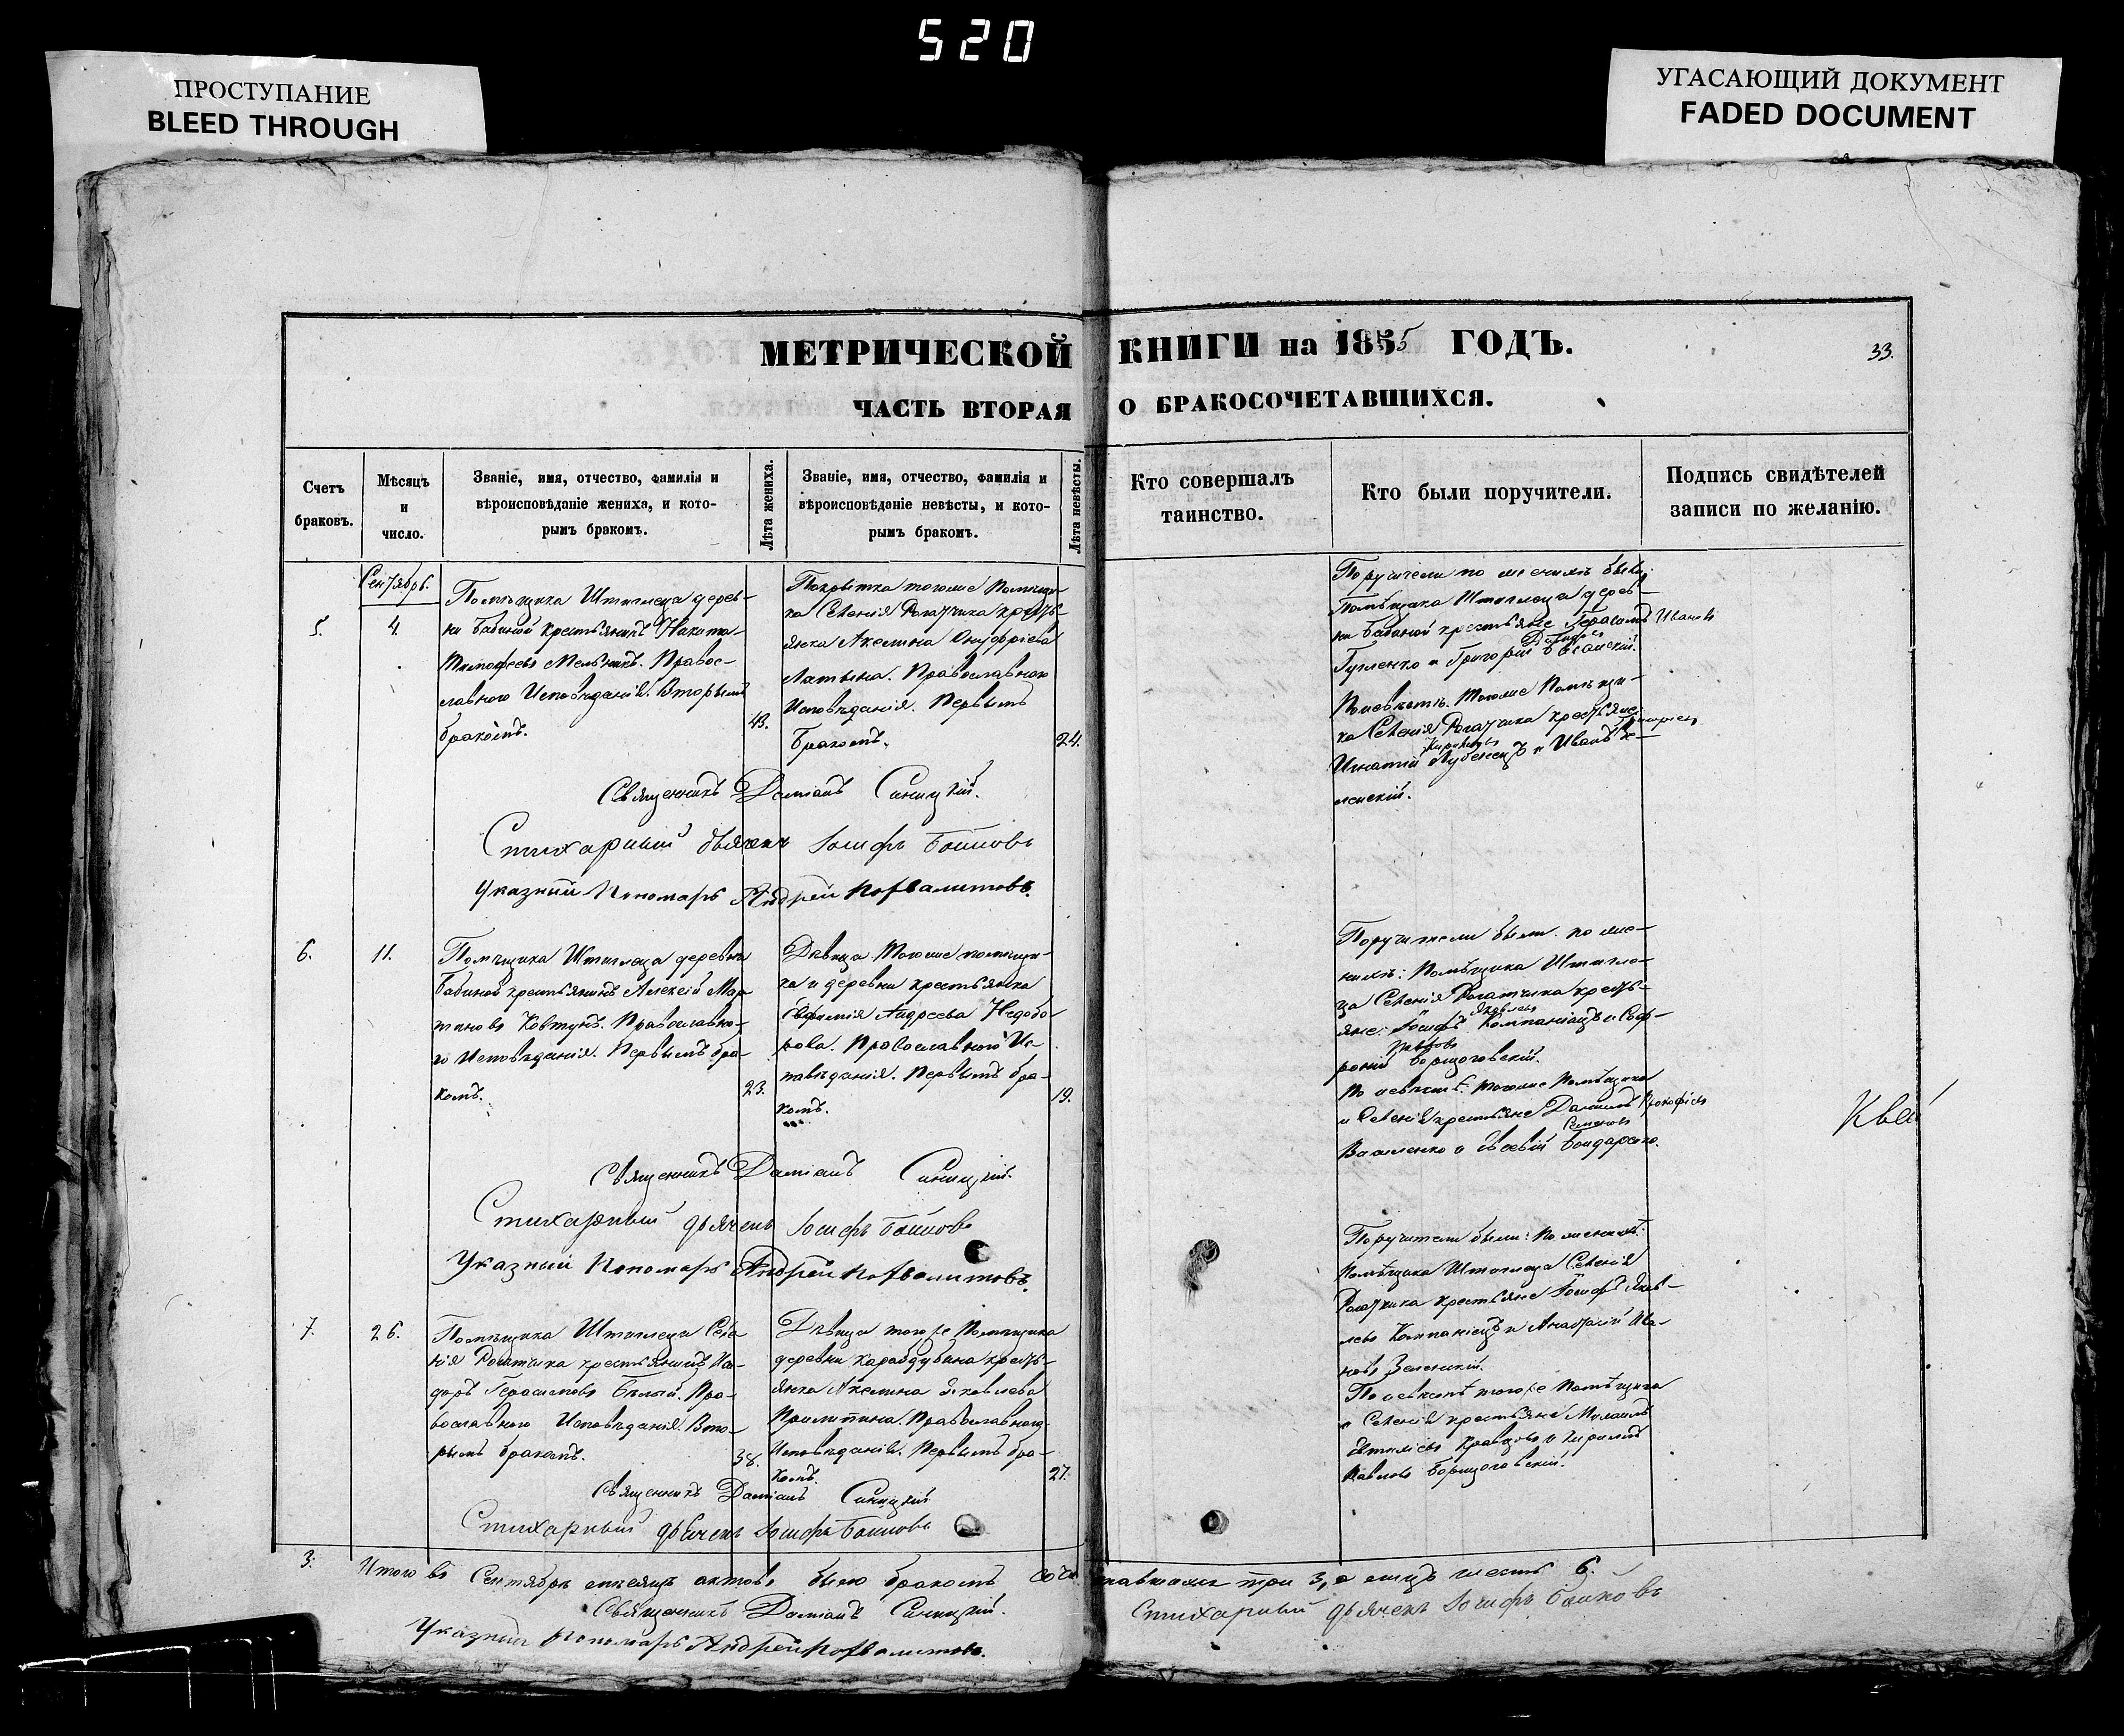 520
ПРОСТУПАНИЕ
BLEED THROUGH
УГАСАЮЩИЙ ДОКУМЕНТ
FADED DOCUMENT
МЕТРИЧЕСКОЙ КНИГИ на 1855 ГОДЪ.
33.
ЧАСТЬ ВТОРАЯ О БРАКОСОЧЕТАВШИХСЯ.
Счетъ
браковъ.
Мѣсяцъ
и
число.
Званіе, имя, отчество, фамилія и
вѣроисповѣданіе жениха, и кото-
рымъ бракомъ.
Лѣта жениха.
Званіе, имя, отчество, фамилія и
вѣроисповѣданіе невѣсты, и кото-
рымъ бракомъ.
Лѣта невѣсты.
Кто совершалъ
таинство.
Кто были поручители.
Подпись свидѣтелей
записи по желанію.
Сентябрь.
5.
4.
Помѣщика Штиглеца дерев-
ни Бабиной крестьянинъ
Тимофеевъ Мельникъ. Правос-
лавного Исповѣданія. Вторымъ
бракомъ.
43.
Покрытка тогоже Помѣщи-
ка Селенія Рогачика кресть-
янка Акелина Онуфріева
Латына. Православного
Исповѣданія. Первымъ
бракомъ.
24.
Поручители по женихѣ были:
Помѣщика Штиглеца дерев-
ни Бабиной крестьяне Герасимъ Ивановъ
и Григорій
По невѣстѣ. Тогоже Помѣщи-
ка Селенія Рогачика крестьяне
Игнатій Лубенецъ и Иванъ
Священникъ Даміанъ Синицкій.
Стихарный дьячекъ Іосифъ Бойковъ
Указный Пономарь Андрей
6.
11.
Помѣщика Штиглеца деревни
Бабиной крестьянинъ Алексѣй Мар
тиновъ Ковтунъ. Православно-
го Исповѣданія. Первымъ бра-
комъ.
23.
Дѣвица Тогоже помѣщи-
ка и деревни крестьянка
Евфимія Андреева Недобо-
рова. Православного Ис
повѣданія. Первымъ бра-
комъ.
19.
Поручители были по же-
нихѣ: Помѣщика Штигле-
ца Селенія Рогачика кресть-
яне: Іосифъ Яковлевъ Компаніецъ и Соф-
роній Павловъ Борщоговскій.
По невѣстѣ. тогоже Помѣщика
и Селенія крестьяне Даніилъ Прокофіевъ
Василенко и Евсевій Семеновъ Бондаренко.
Священникъ Даміанъ Синицкій.
Стихарный дьячекъ Іосифъ Бойковъ
Указный Пономарь Андрей
7.
26.
Помѣщика Штиглеца Селе
нія Рогачика крестьянинъ Иси-
доръ Герасимовъ Бѣлый. Пра-
вославного Исповѣданія. Вто-
рымъ бракомъ.
38.
Дѣвица тогоже Помѣщика
деревни Карайдубина кресть-
янка Акелина Яковлева
Православного
Исповѣданія. Первымъ бра-
комъ.
27.
Поручители были: По женихѣ:
Помѣщика Штиглеца Селенія
Рогачика крестьяне Іосифъ Яков-
левъ Компаніецъ и Анатолій Ива-
новъ Зеленскій.
По невѣстѣ тогоже Помѣщика
и Селенія крестьяне Михаилъ
Евтихіевъ Кравцовъ и
Павловъ Борщоговскій.
Священникъ Даміанъ Синицкій
Стихарный дьячекъ Іосифъ Бойковъ
3.
Итого въ Сентябрѣ мѣсяцѣ актовъ было бракомъ сочетавшихся три 3, а лицъ шесть 6.
Священникъ Даміанъ Синицкій.
Стихарный дьячекъ Іосифъ Бойковъ
Указный Пономарь Андрей